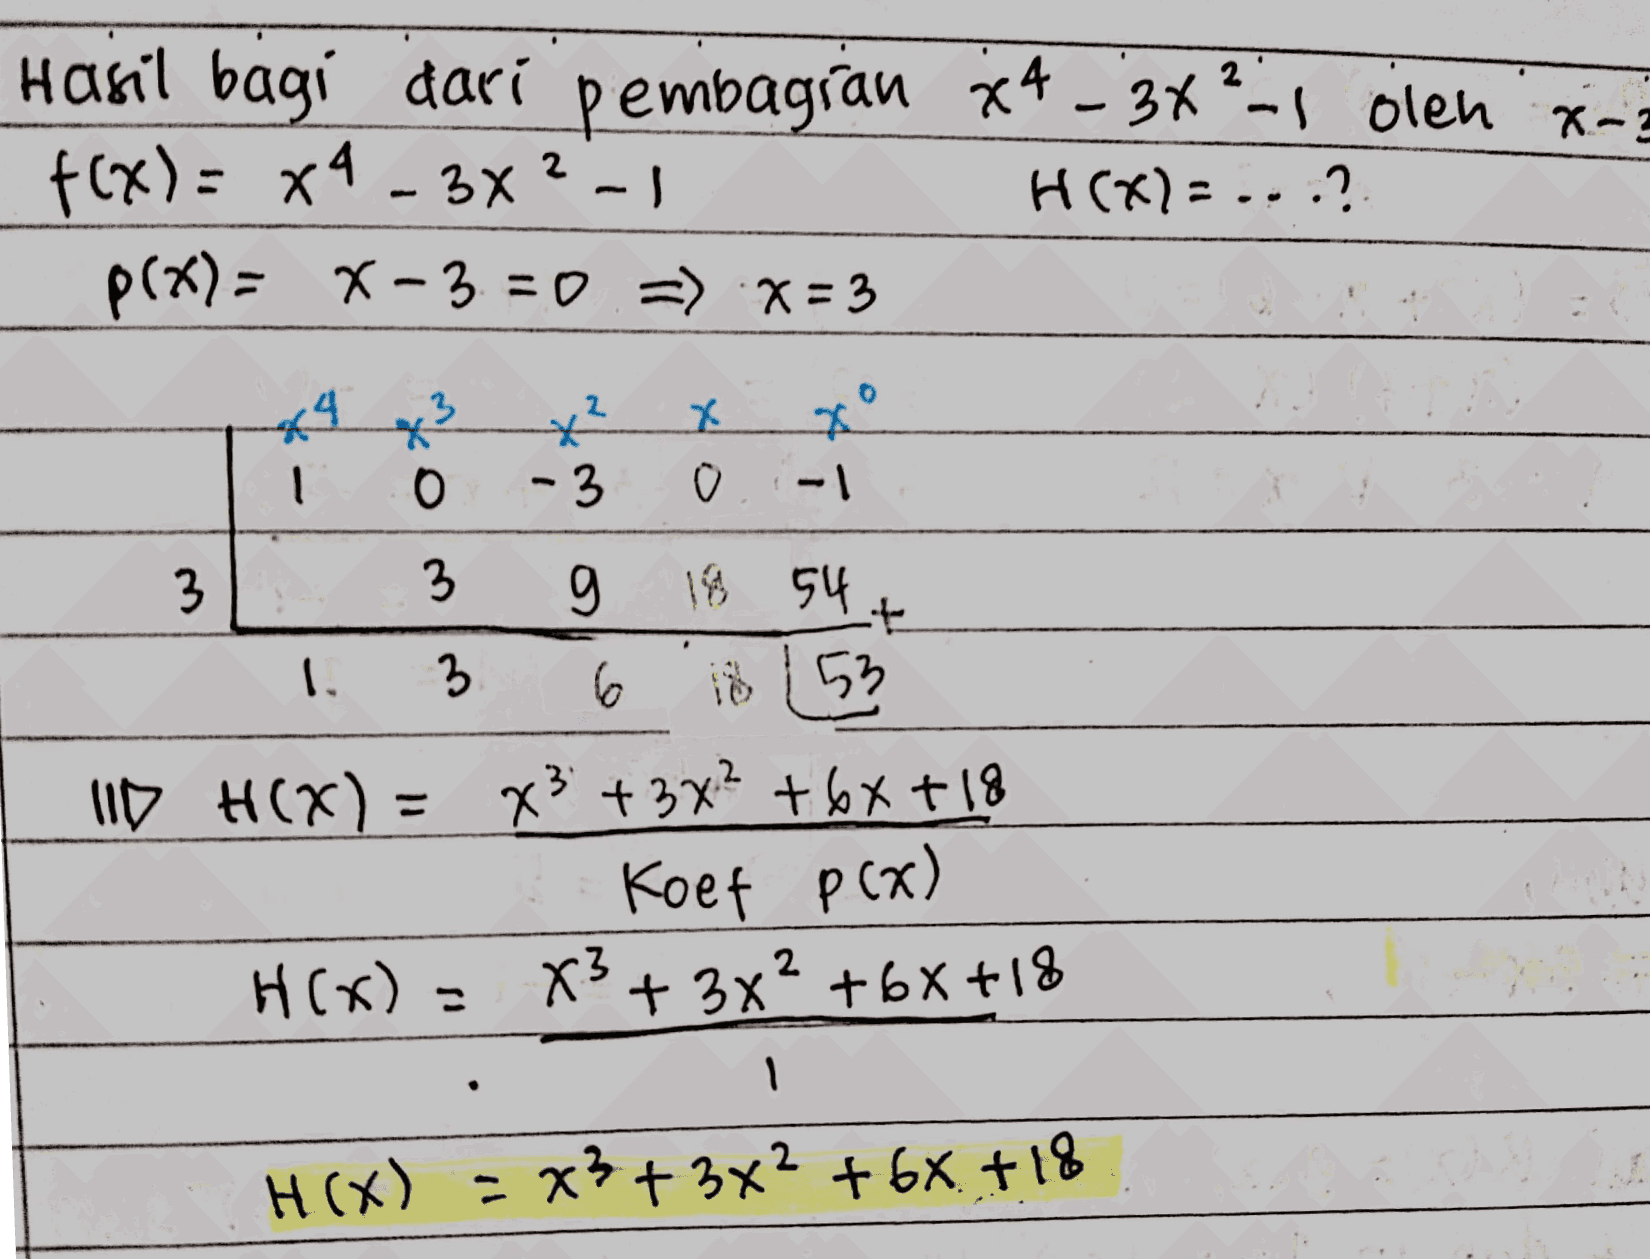 Hasil bagi dari pembagian x⁴ - 3x² - 1 oleh x-3
f(x) = x⁴ - 3x² - 1 H(x) = ...?
p(x) = x - 3 = 0 ⇒ x = 3
x⁴ x³ x² x x⁰
1 0 -3 0 -1
3 3 9 18 54 +
1. 3 6 18 53
H(x) = x³ + 3x² + 6x + 18
Koef p(x)
H(x) = x³ + 3x² + 6x + 18
1
H(x) = x³ + 3x² + 6x + 18